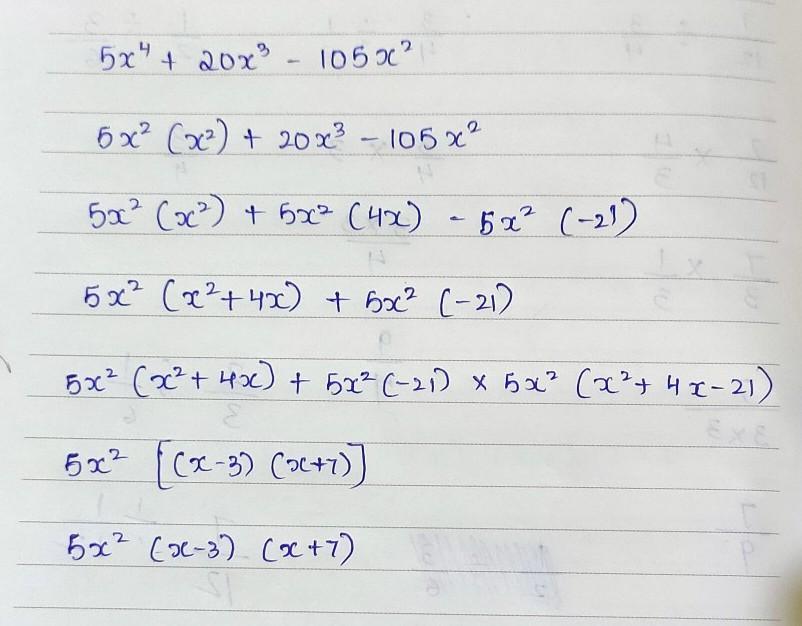 5x⁴ + 20x³ - 105x²
5x² (x²) + 20x³ - 105x²
5x² (x²) + 5x² (4x) - 5x² (-21)
5x² (x²+4x) + 5x² (-21)
5x² (x²+4x) + 5x² (-21) × 5x² (x²+4x-21)
5x² [(x-3) (x+7)]
5x² (x-3) (x+7)